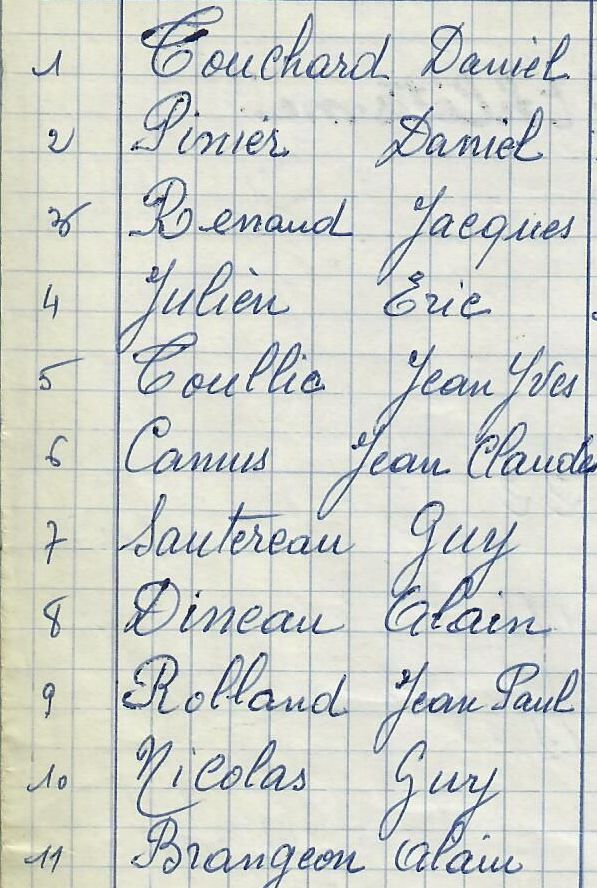 1 Touchard Daniel
2 Pinier Daniel
3 Renaud Jacques
4 Julien Eric
5 Toullic Jean Yves
6 Camus Jean Claude
7 Sautereau Guy
8 Dineau Alain
9 Rolland Jean Paul
10 Nicolas Guy
11 Brangeon Alain